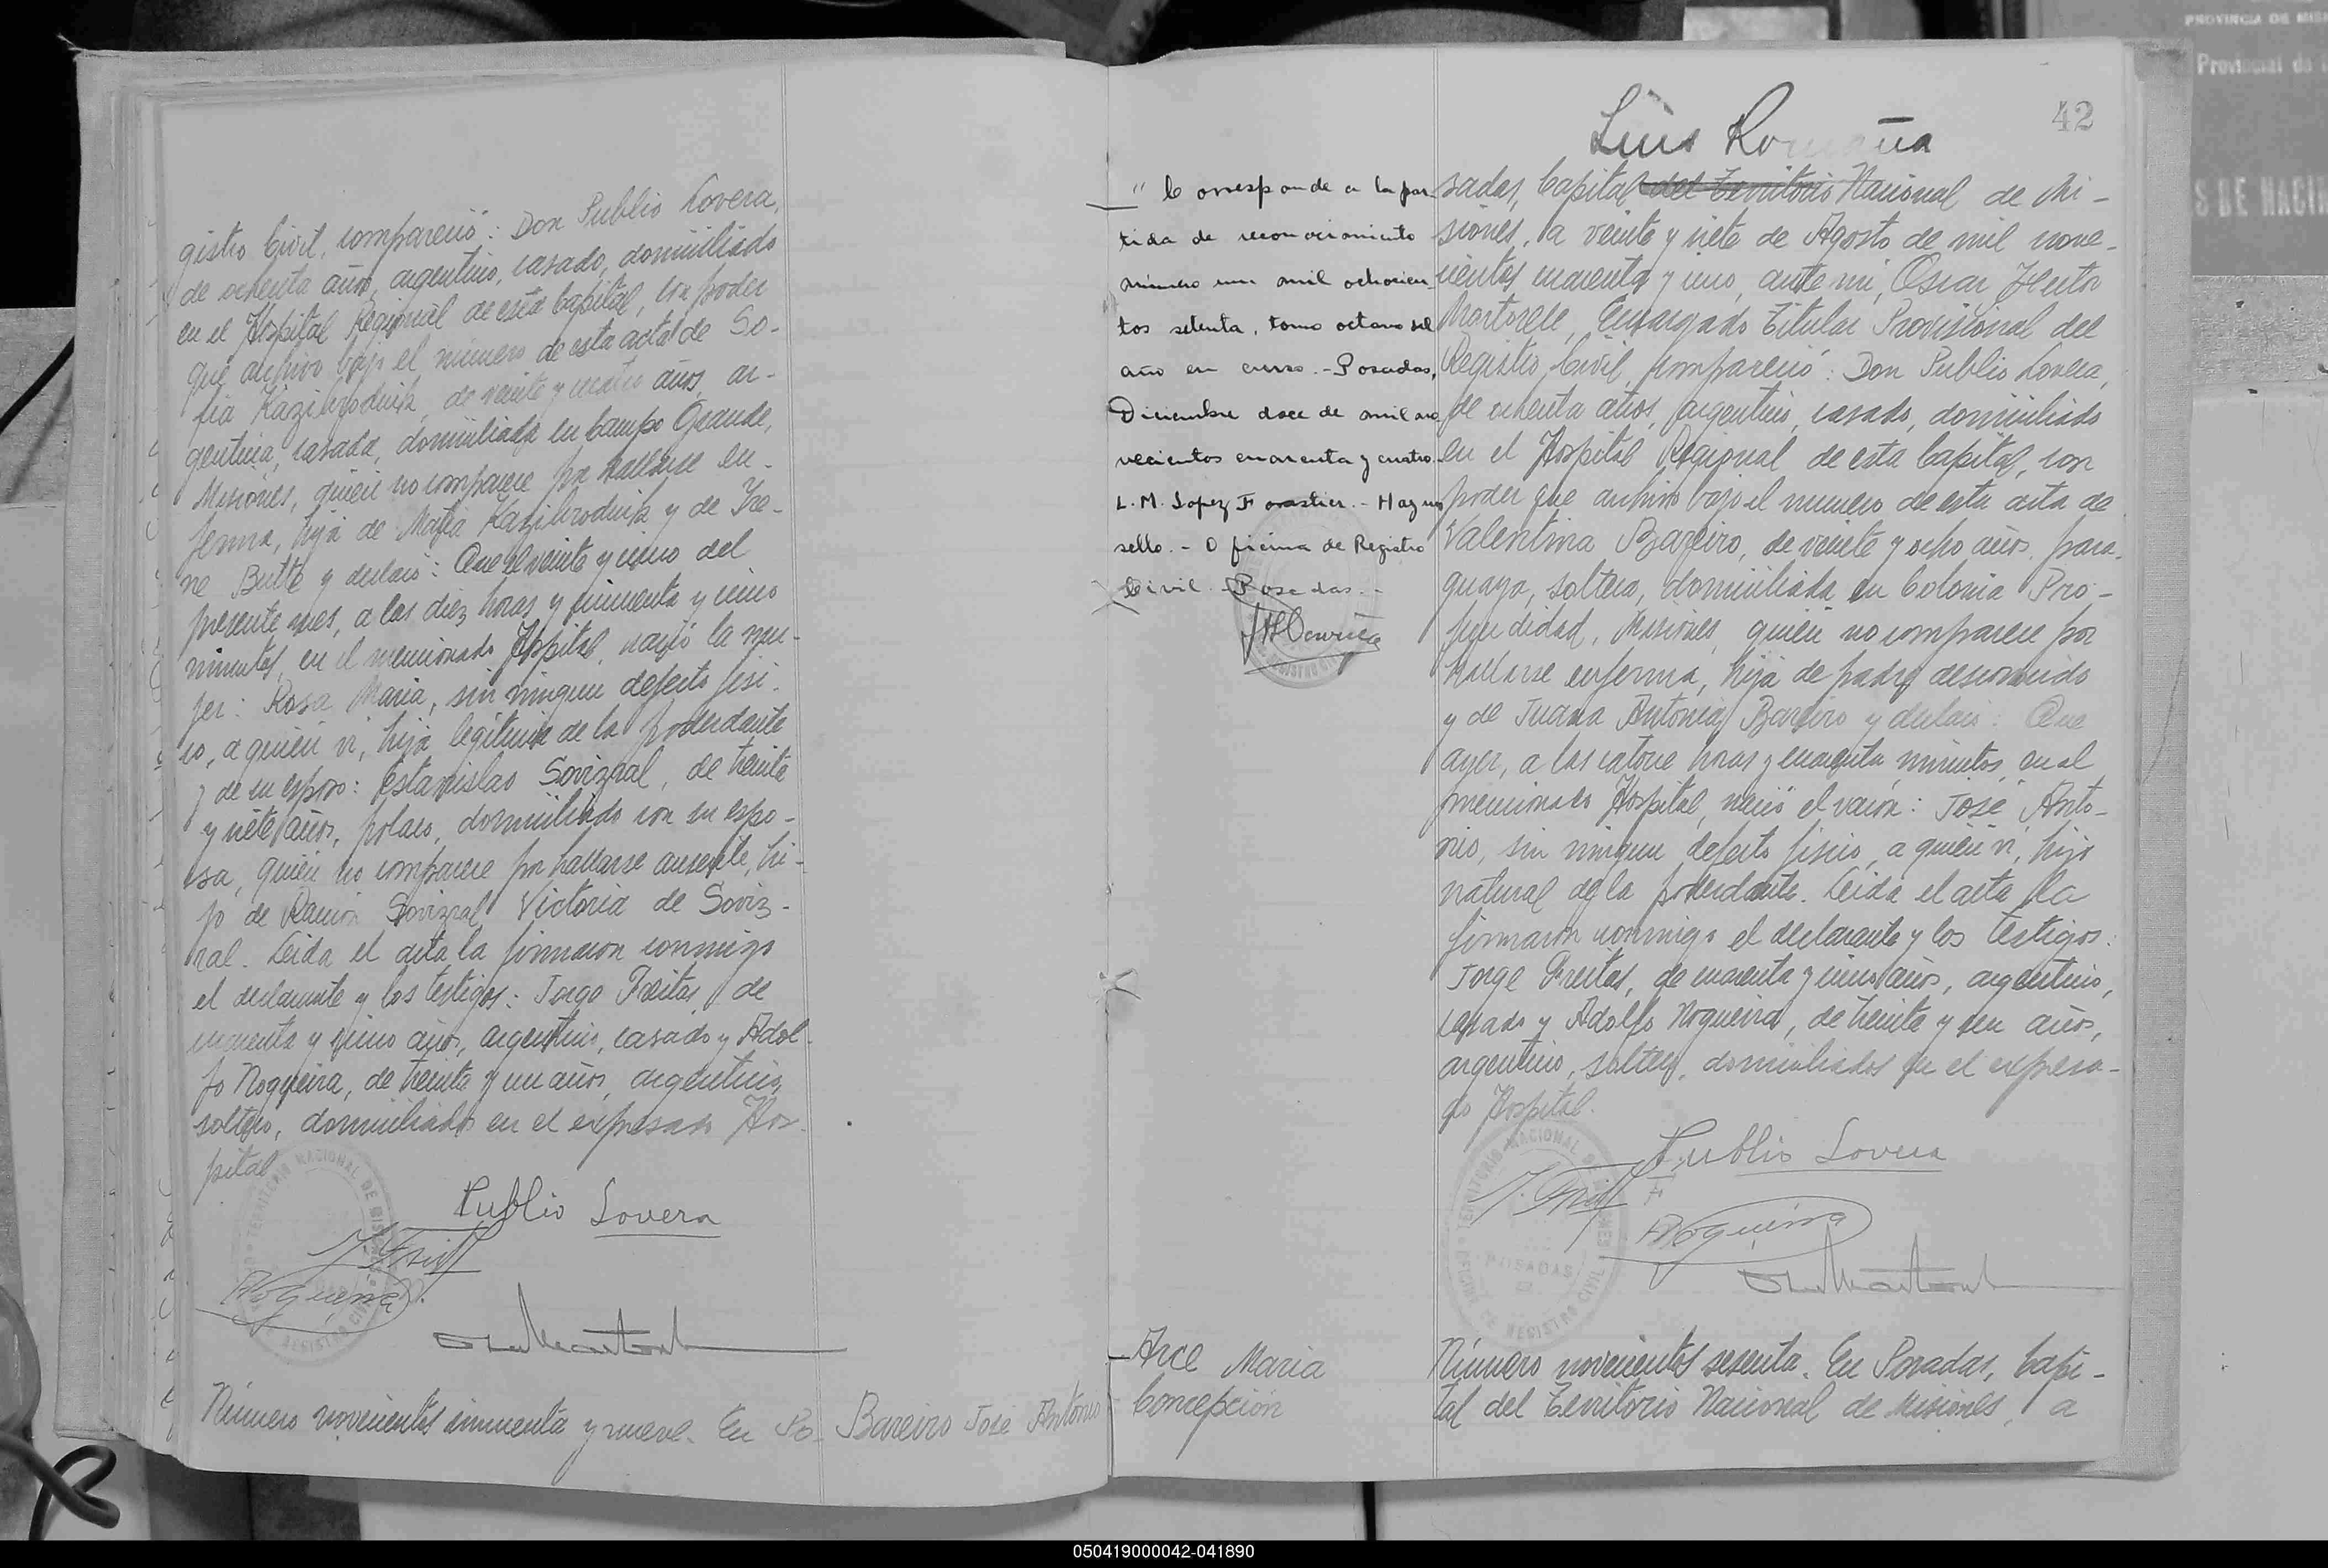 gistro Civil, compareció: Don Publio Lovera,
de ochenta años, argentino, casado, domiciliado
en el Hospital Regional de esta Capital, con poder
que archivo bajo el número de esta acta de So-
fia Kazibrodnik, de veinte y cuatro años, ar-
gentina, casada, domiciliada en Campo Grande,
Misiones, quién no comparece por hallarse en-
ferma, hija de Kazibrodnik y de Ire-
ne y declaró: Que el veinte y cinco del
presente mes, a las diez horas y cincuenta y cinco
minutos, en el mencionado Hospital, nació la mu-
jer: Rosa Maria, sin ningun defecto físi-
co, a quién vi, hija legítima de la poderdante
y de su esposo: Estanislao Sovizral, de treinta
y siete años, polaco, domiciliado con su espo-
sa, quién no comparece por hallarse ausente, hi-
jo de Ramón Sovizral Victoria de Soviz-
ral. Leida el acta la firmaron conmigo
el declarante y los testigos: Jorge Freitas, de
cuarenta y cinco años, argentino, casado y Adol-
fo Nogueira, de treinta y un años, argentino,
soltero, domiciliados en el expresado Hos-
pital
TERRITORIO NACIONAL DE MISIONES
REGISTRO CIVIL
Publio Lovera
Número novecientos cincuenta y nueve. En Po-
Bareiro José Antonio
Luis Romaña
42
" Corresponde a la par-
tida de reconocimiento
número un mil ochocien-
tos setenta, tomo octavo del
año en curso. - Posadas,
Diciembre doce de mil no-
vecientos cuarenta y cuatro.
L. M. Lopez Forastier. - Hay un
sello. - Oficina de Registro
Civil. - Posadas. -
sadas, Capital del Territorio Nacional de Mi-
siones, a veinte y siete de Agosto de mil nove-
cientos cuarenta y uno, ante mi, Oscar Hector
Martorell, Encargado Titular Provisional del
Registro Civil, compareció: Don Publio Lovera,
de ochenta años, argentino, casado, domiciliado
en el Hospital Regional de esta Capital, con
poder que archivo bajo el número de esta acta de
Valentina Bareiro, de veinte y ocho años, para-
guaya, soltera, domiciliada en Colonia Pro-
fundidad, Misiones, quién no comparece por
hallarse enferma, hija de padre desconocido
y de Juana Antonia Bareiro y declaró: Que
ayer, a las catorce horas y cuarenta minutos, en el
mencionado Hospital, nació el varón: José Anto-
nio, sin ningun defecto físico, a quién vi, hijo
natural de la poderdante. Leida el acta la
firmaron conmigo el declarante y los testigos:
Jorge Freitas, de cuarenta y cinco años, argentino,
casado y Adolfo Nogueira, de treinta y un años,
argentino, soltero, domiciliados en el expresa-
do Hospital.
TERRITORIO NACIONAL DE MISIONES
POSADAS
OFICINA DE REGISTRO CIVIL
Publio Lovera
Arce Maria
Concepción
Número novecientos sesenta. En Posadas, Capi-
tal del Territorio Nacional de Misiones, a
PROVINCIA DE MIS
Provincial de
S DE NACIM
050419000042-041890